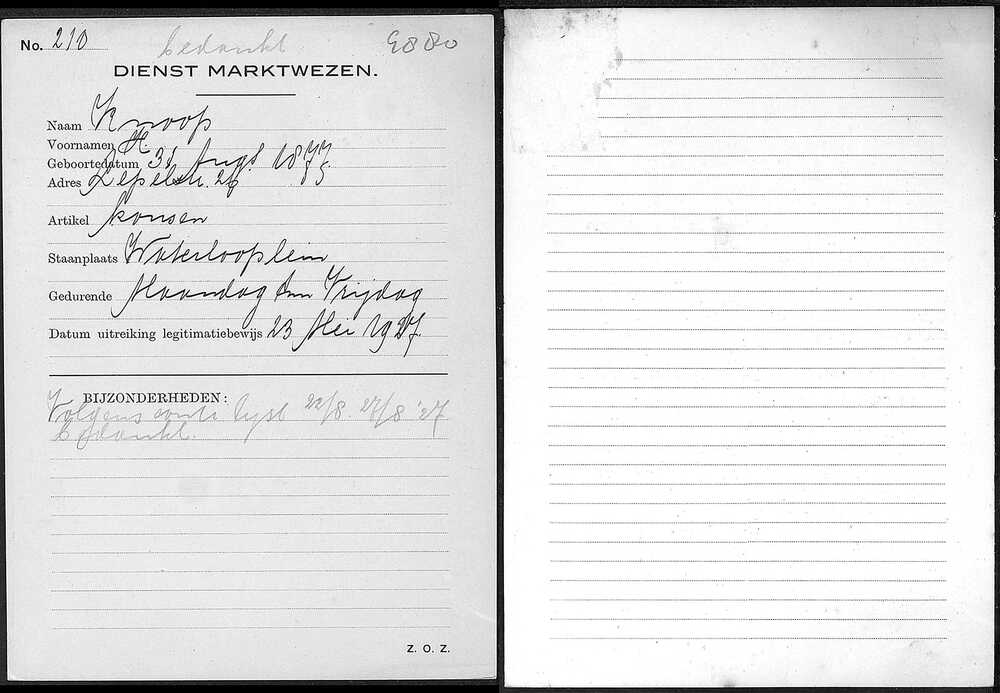 No. 210 bedankt 9880
DIENST MARKTWEZEN.
Naam Knoop
Voornamen H.
Geboortedatum 31 Augs. 1877
Adres Lepelstr. 26
Artikel kousen
Staanplaats Waterlooplein
Gedurende Maandag t/m Vrijdag
Datum uitreiking legitimatiebewijs 23 Mei 1927.
BIJZONDERHEDEN:
Volgens lijst 22/8 27/8 '27
bedankt.
Z. O. Z.